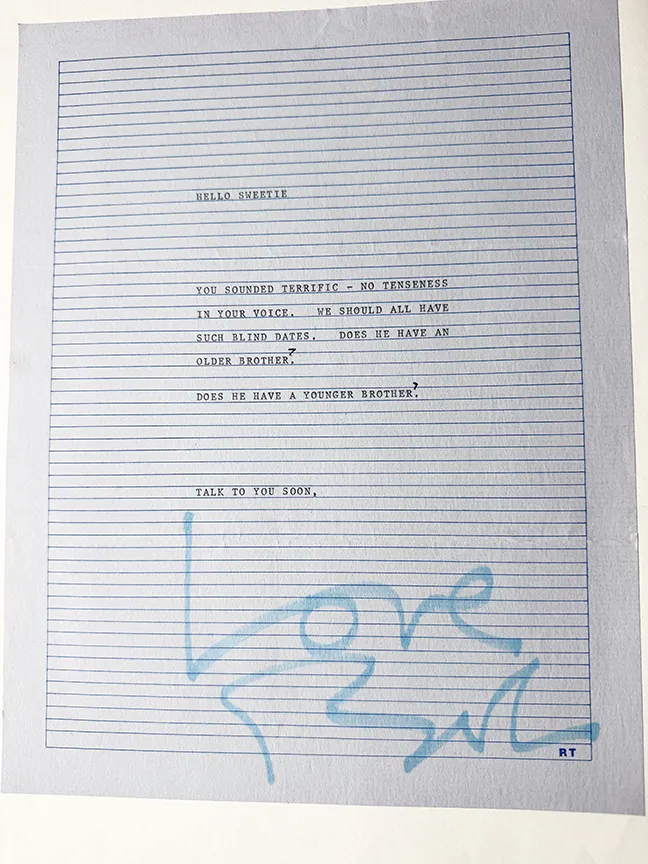 HELLO SWEETIE
YOU SOUNDED TERRIFIC - NO TENSENESS
IN YOUR VOICE. WE SHOULD ALL HAVE
SUCH BLIND DATES. DOES HE HAVE AN
OLDER BROTHER?
DOES HE HAVE A YOUNGER BROTHER?
TALK TO YOU SOON,
Love
RT